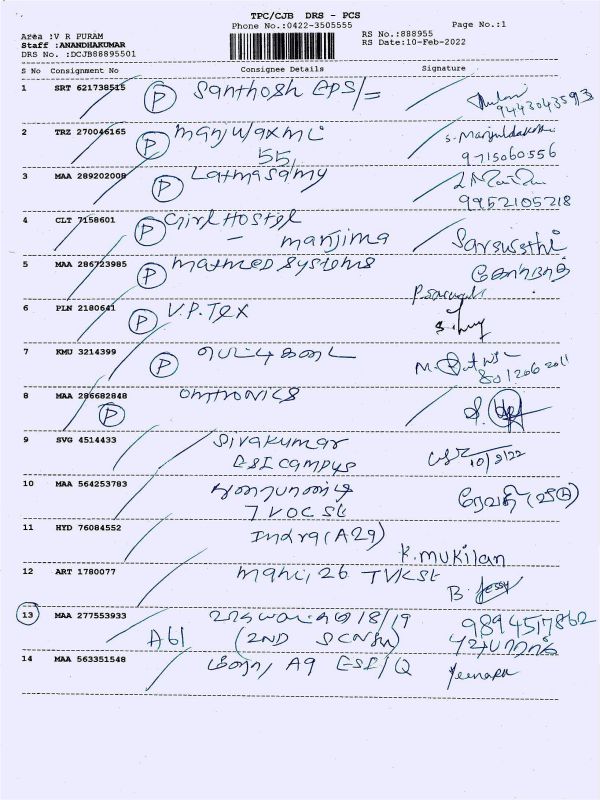 TPC/CJB DRS - PCS
Phone No.:0422-3505555
Page No.:1
Area :V R PURAM
Staff :ANANDHAKUMAR
DRS No. :DCJB88895501
RS No.:888955
RS Date:10-Feb-2022
S No Consignment No Consignee Details Signature
1 SRT 621738515 P Santhosh EPS/=
9443043593
2 TRZ 270046165 P manjulaxmi
55,
9715060556
3 MAA 289202008 P
9952105218
4 CLT 7158601 P Girl Hostel
- manjima
5 MAA 286723985 P mathmed Systems
6 PLN 2180641 P V.P. Tex
7 KMU 3214399 P பெட்டிகடை
8 MAA 286682848 P omtronics
9 SVG 4514433 Sivakumar
ESI campus 10/2/22
10 MAA 564253783
7 VOC St ரேவதி
11 HYD 76084552 Indra (A29)
K. mukilan
12 ART 1780077 26 TVK St
B. Jessy
13 MAA 277553933 18/19 9894517862
A61 (2ND
14 MAA 563351548 A9 ESI/Q